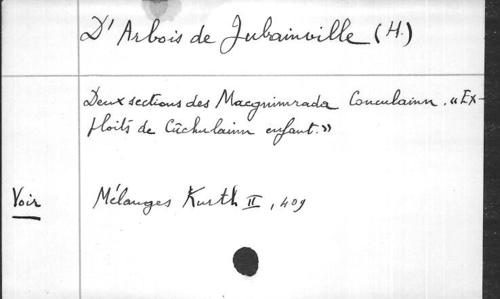 D'Arbois de Jubainville (H.)
Deux sections des Macgnimrada Conculainn. «Ex-
ploits de Cûchulainn enfant.»
Voir Mélanges Kurth II, 409